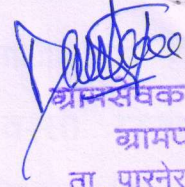 ग्रामसेवक
ग्रामप
ता पारनेर